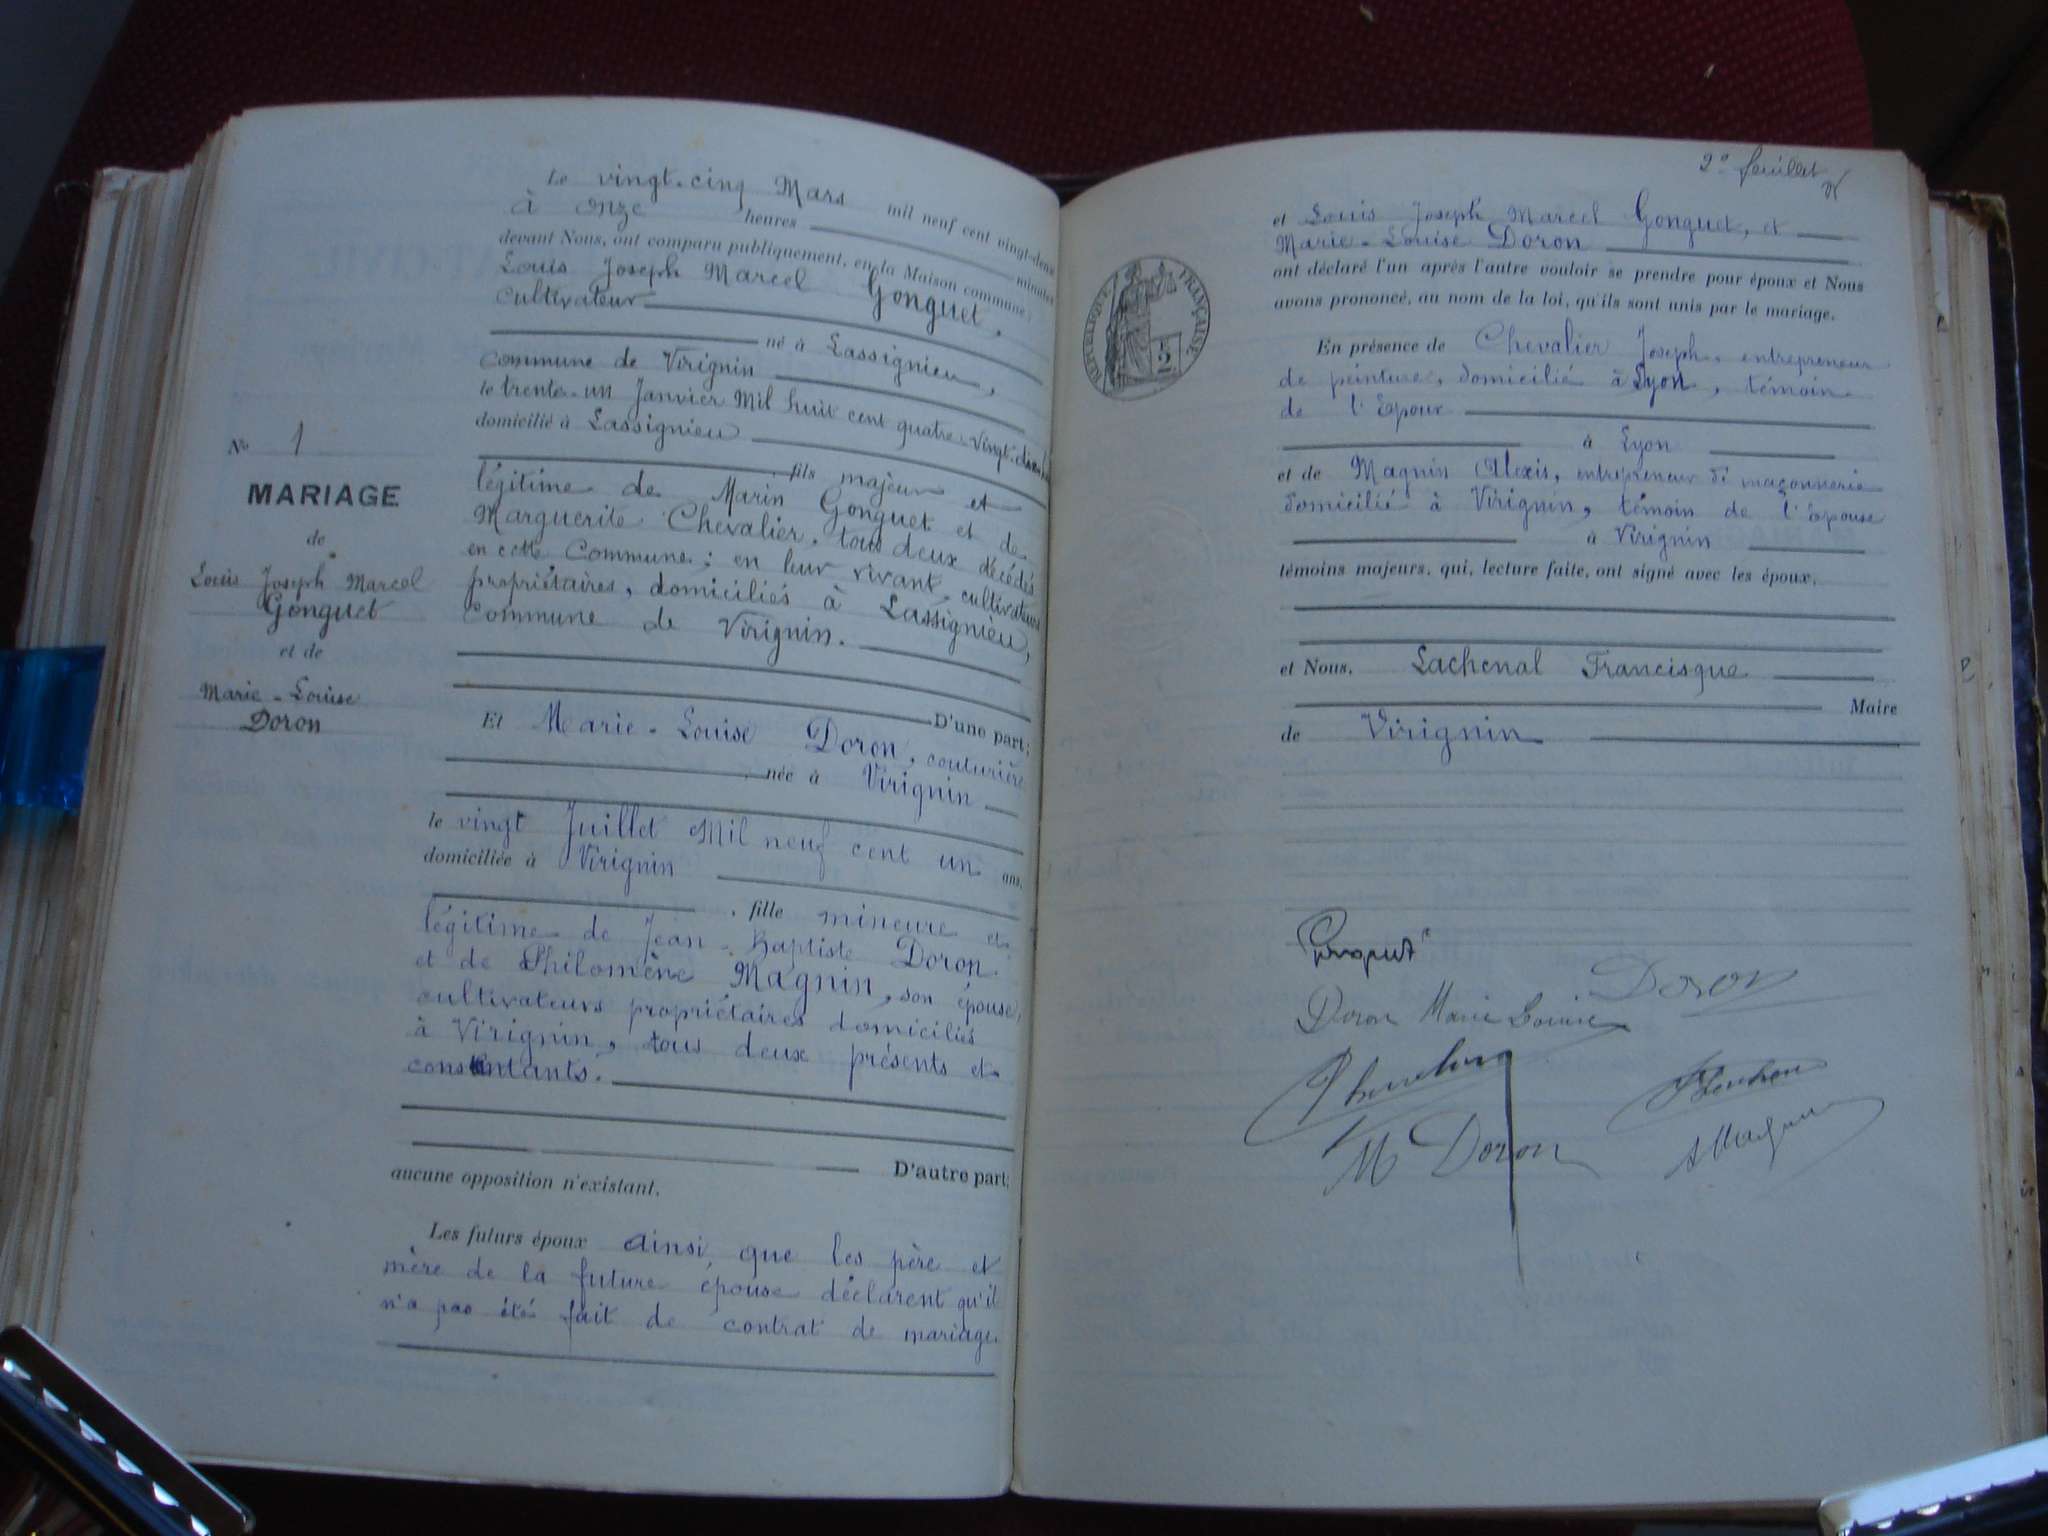 Le vingt-cinq Mars mil neuf cent vingt-deux
à onze heures minutes
devant Nous, ont comparu publiquement, en la Maison commune :
Louis Joseph Marcel Gonguet,
cultivateur
né à Lassignieu,
commune de Virignin
le trente-un Janvier Mil huit cent quatre-vingt
domicilié à Lassignieu
, fils majeur et
légitime de Marin Gonguet et de
Marguerite Chevalier, tous deux décédés
en cette Commune ; en leur vivant, cultivateurs
propriétaires, domiciliés à Lassignieu,
Commune de Virignin.
D'une part;
No 1
MARIAGE
de
Louis Joseph Marcel
Gonguet
et de
Marie-Louise
Doron
Et Marie-Louise Doron, couturière
, née à Virignin
le vingt Juillet Mil neuf cent un ans,
domiciliée à Virignin
, fille mineure et
légitime de Jean-Baptiste Doron
et de Philomène Magnin, son épouse,
cultivateurs propriétaires domiciliés
à Virignin, tous deux présents et
consentants.
D'autre part;
aucune opposition n'existant.
Les futurs époux ainsi que les père et
mère de la future épouse déclarent qu'il
n'a pas été fait de contrat de mariage.
2e feuillet
RÉPUBLIQUE FRANÇAISE
et Louis Joseph Marcel Gonguet, et
Marie-Louise Doron
ont déclaré l'un après l'autre vouloir se prendre pour époux et Nous
avons prononcé, au nom de la loi, qu'ils sont unis par le mariage.
En présence de Chevalier Joseph, entrepreneur
de peinture, domicilié à Lyon, témoin
de l'Epoux
à Lyon
et de Magnin Alexis, entrepreneur de maçonnerie
domicilié à Virignin, témoin de l'épouse
à Virignin
témoins majeurs, qui, lecture faite, ont signé avec les époux,
et Nous, Lachenal Francisque
Maire
de Virignin
Gonguet
Doron
Doron Marie Louise
M Doron
A Magnin